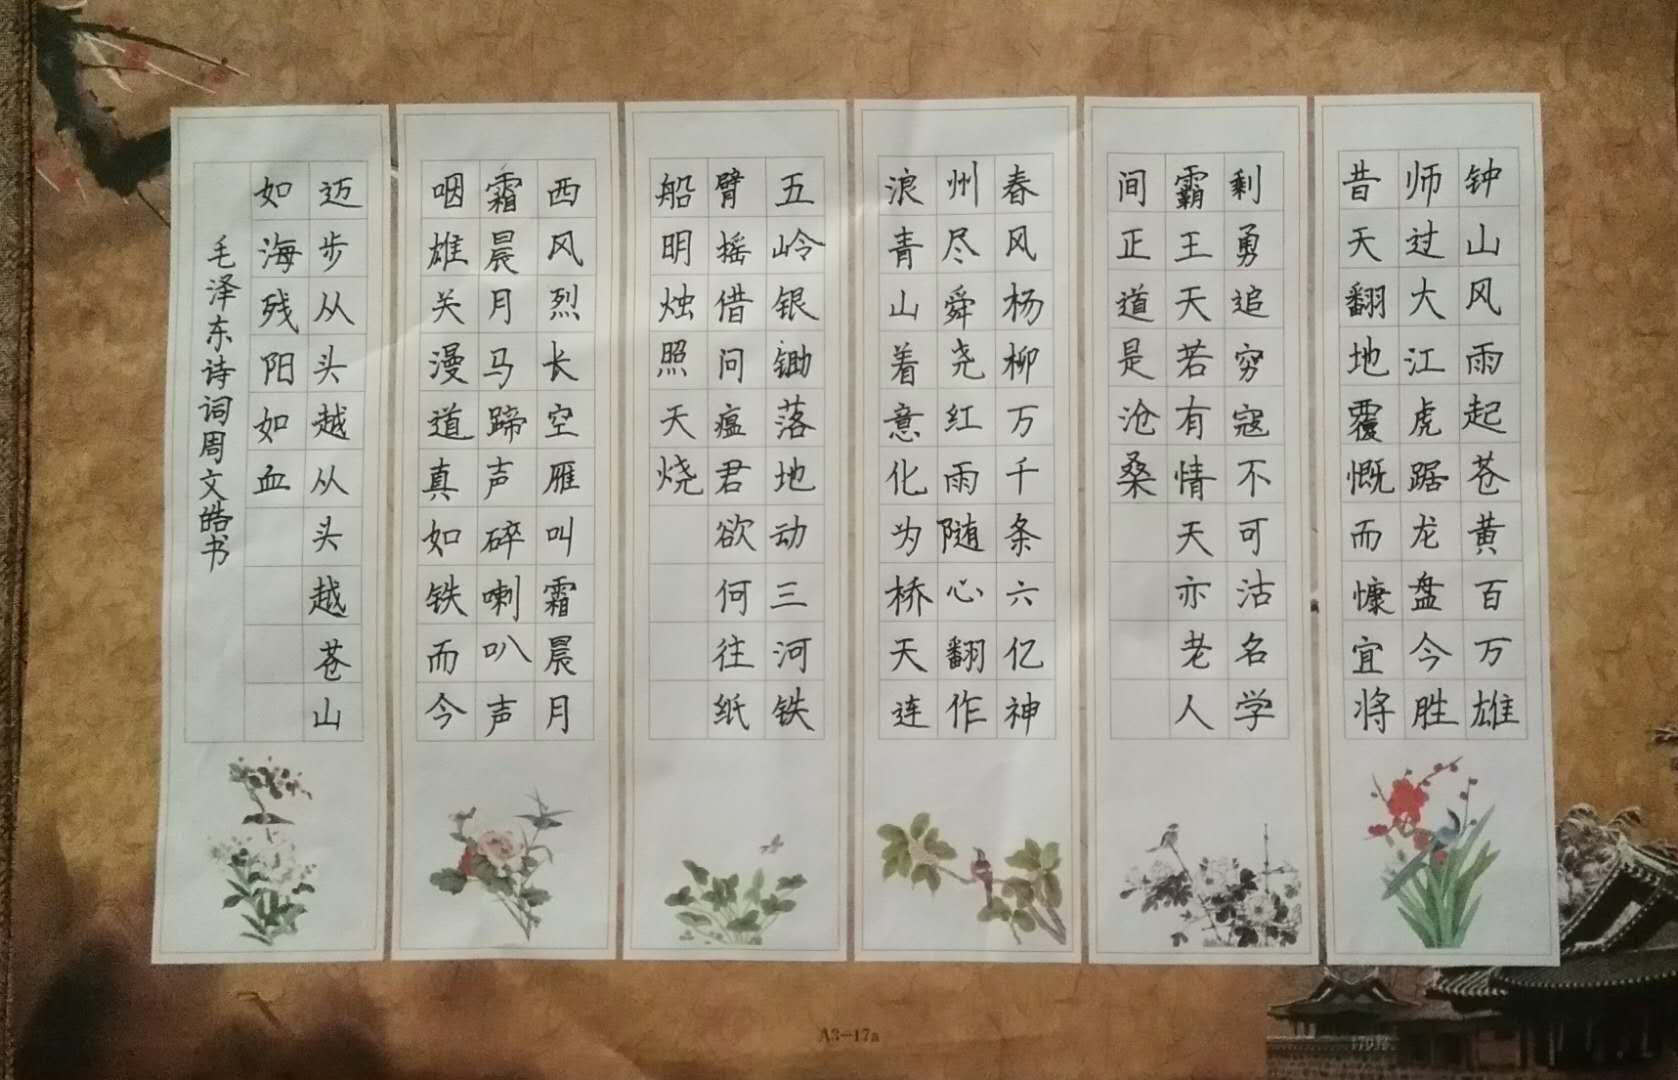 钟山风雨起苍黄百万雄
师过大江虎踞龙盘今胜
昔天翻地覆慨而慷宜将
剩勇追穷寇不可沽名学
霸王天若有情天亦老人
间正道是沧桑
春风杨柳万千条六亿神
州尽舜尧红雨随心翻作
浪青山着意化为桥天连
五岭银锄落地动三河铁
臂摇借问瘟君欲何往纸
船明烛照天烧
西风烈长空雁叫霜晨月
霜晨月马蹄声碎喇叭声
咽雄关漫道真如铁而今
迈步从头越从头越苍山
如海残阳如血
毛泽东诗词周文皓书
A3-17a